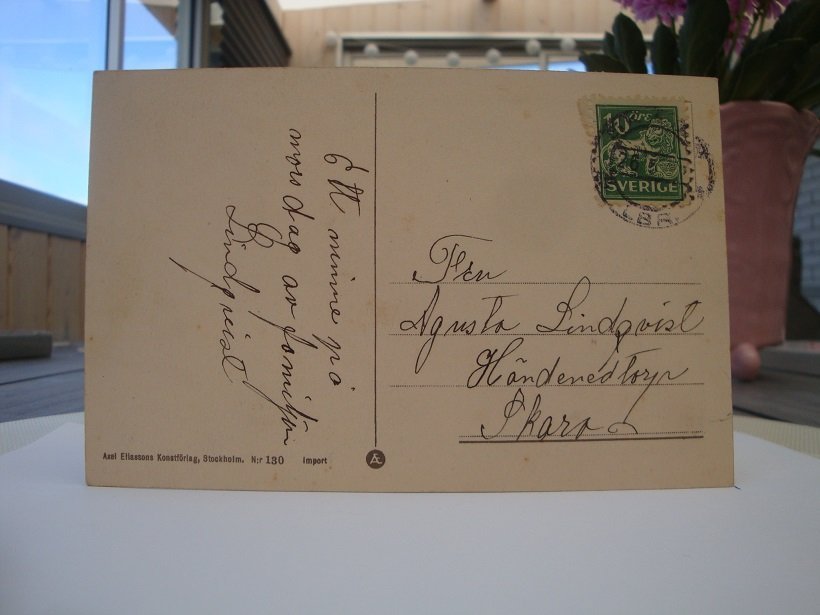 Ett minne på
mors dag av familjen
Lindqvist
10 ÖRE
SVERIGE
LBR
Fru
Agusta Lindqvist
Händenedtorp
Skara
Axel Eliassons Konstförlag, Stockholm. N:r 130 Import